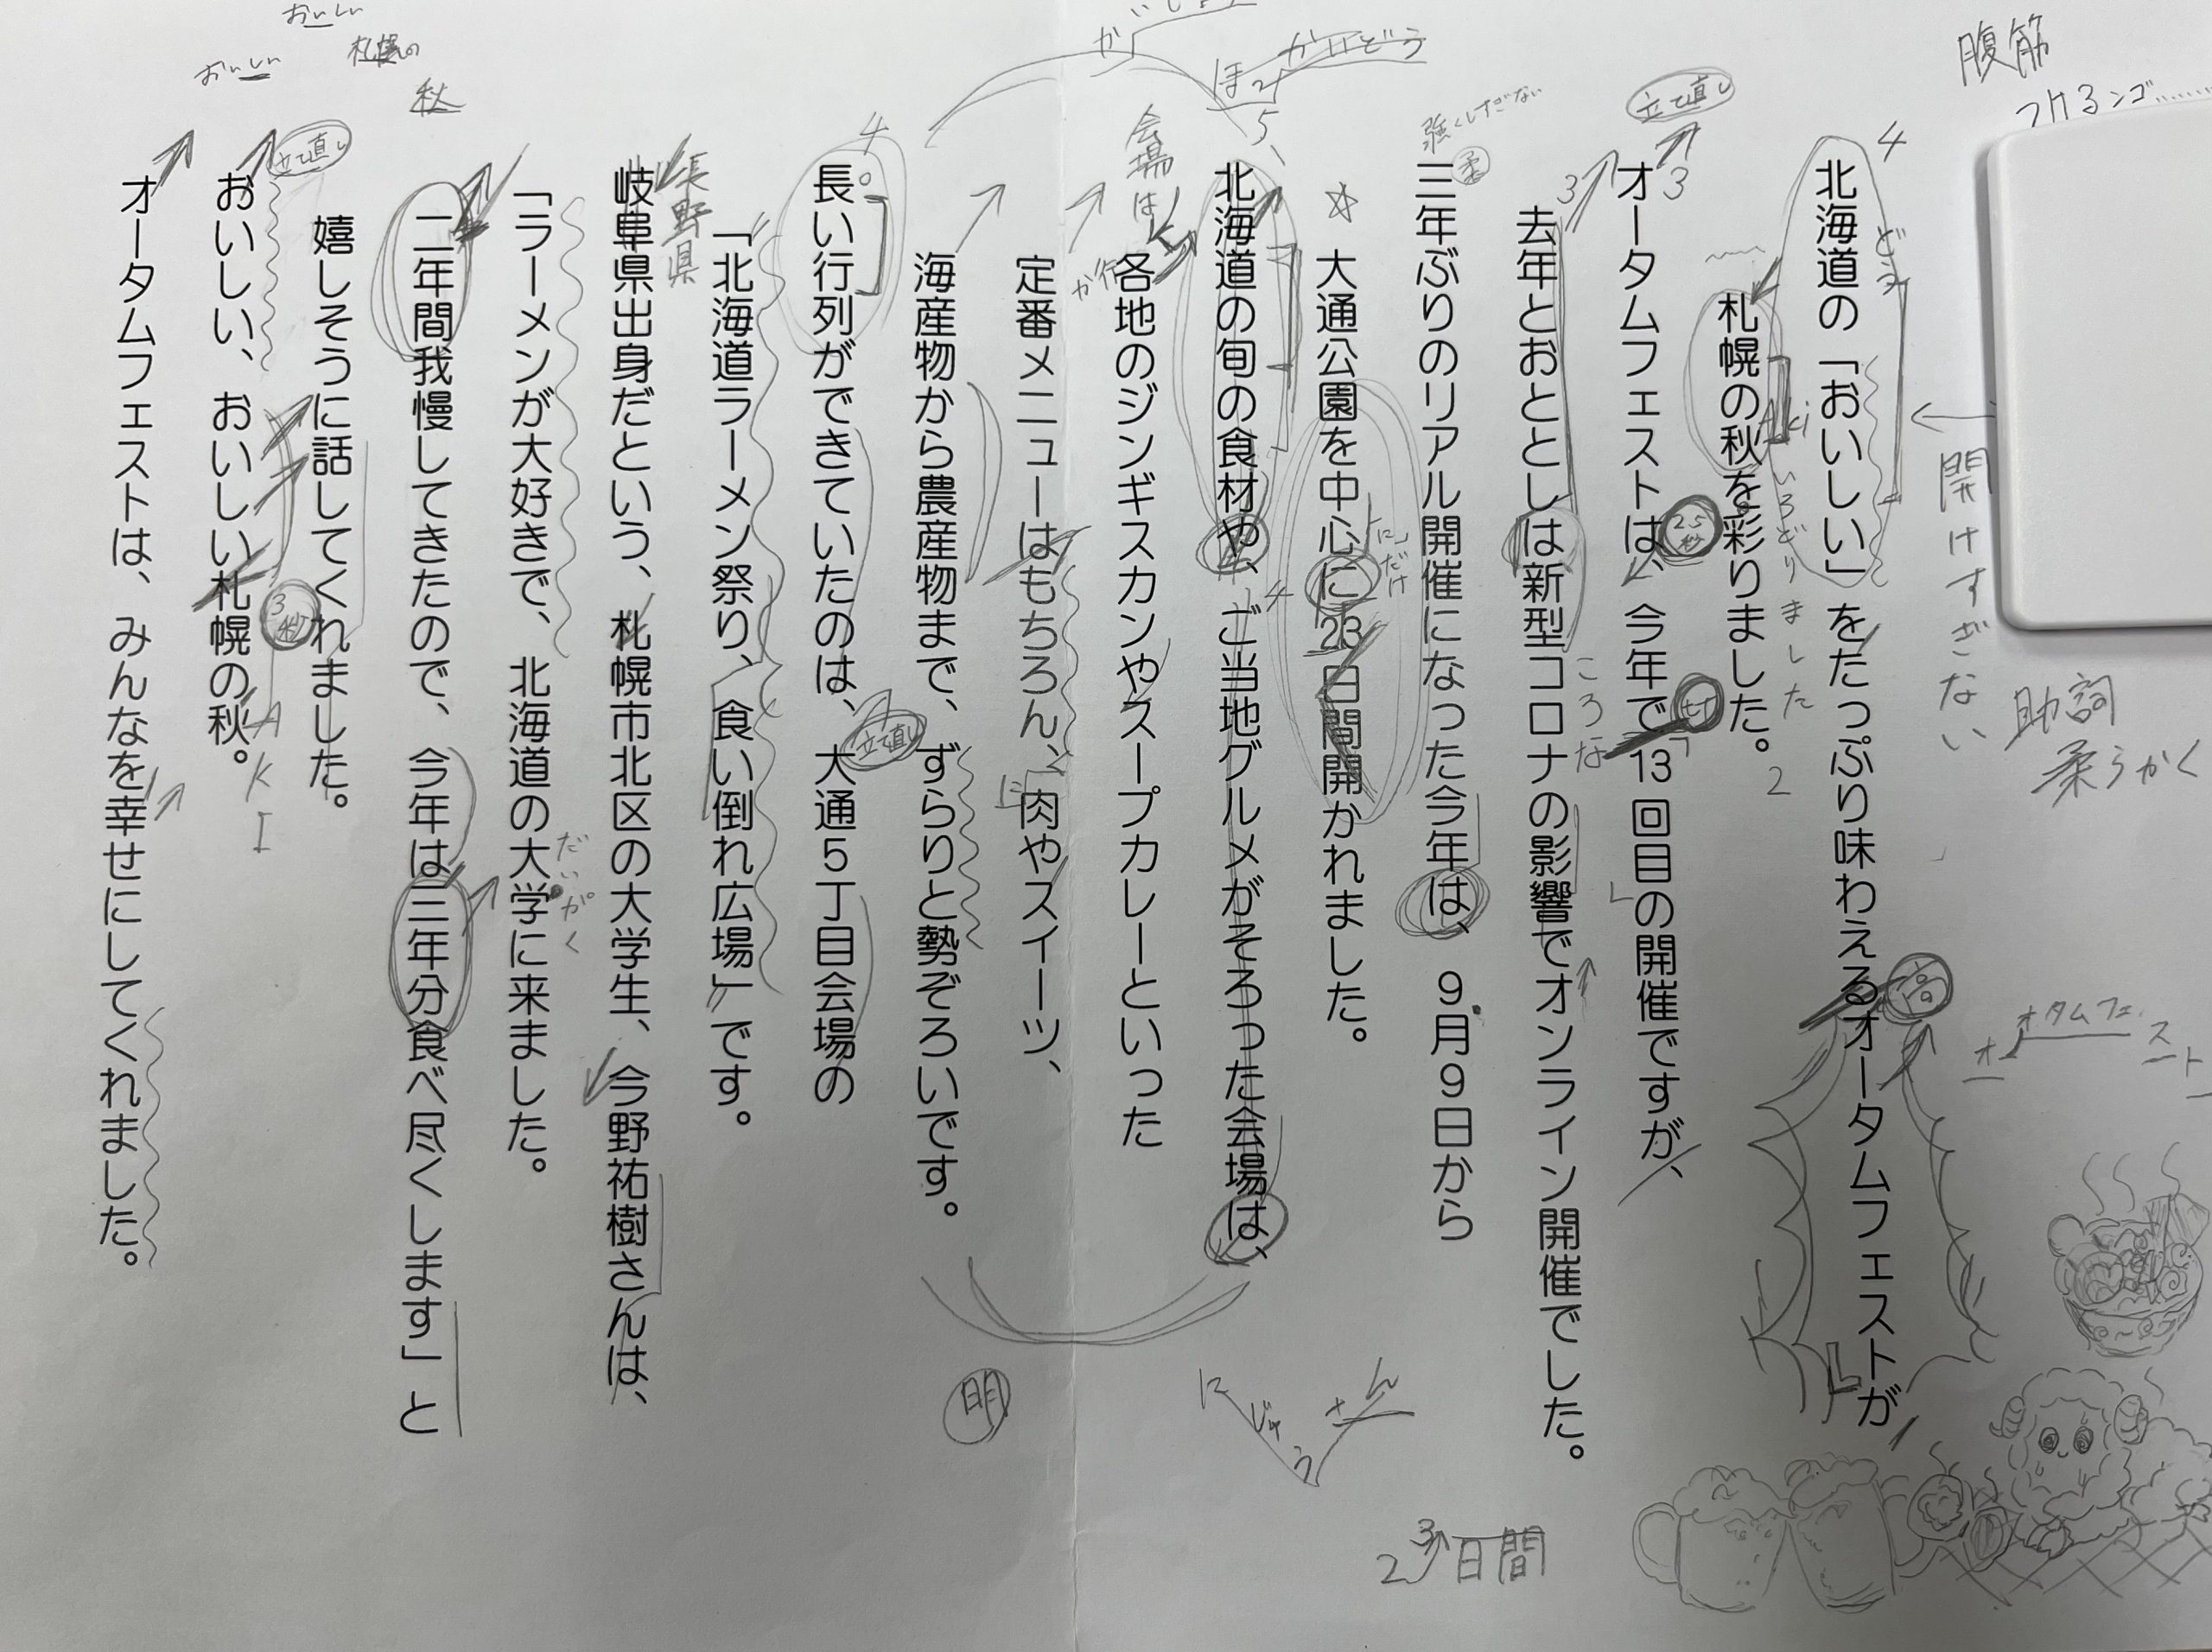 腹筋
つけるンゴ
開けすぎない
助詞
柔らかく
北海道の「おいしい」をたっぷり味わえるオータムフェストが
札幌の秋を彩りました。
いろどりました
オータムフェストは、今年で13回目の開催ですが、
立て直し
去年とおととしは新型コロナの影響でオンライン開催でした。
ころな
三年ぶりのリアル開催になった今年は、9月9日から
強くしすぎない
柔
☆大通公園を中心に23日間開かれました。
「に」だけ
北海道の旬の食材や、ご当地グルメがそろった会場は、
ほっかいどう
会場は
各地のジンギスカンやスープカレーといった
か行
定番メニューはもちろん、肉やスイーツ、
海産物から農産物まで、ずらりと勢ぞろいです。
長い行列ができていたのは、大通5丁目会場の
立て直し
「北海道ラーメン祭り、食い倒れ広場」です。
長野県
岐阜県出身だという、札幌市北区の大学生、今野祐樹さんは、
「ラーメンが大好きで、北海道の大学に来ました。
だいがく
二年間我慢してきたので、今年は三年分食べ尽くします」と
嬉しそうに話してくれました。
立て直し
3秒
おいしい、おいしい札幌の秋。
AKI
オータムフェストは、みんなを幸せにしてくれました。
おいしい
おいしい
札幌の
秋
明
にじゅうさん
23日間